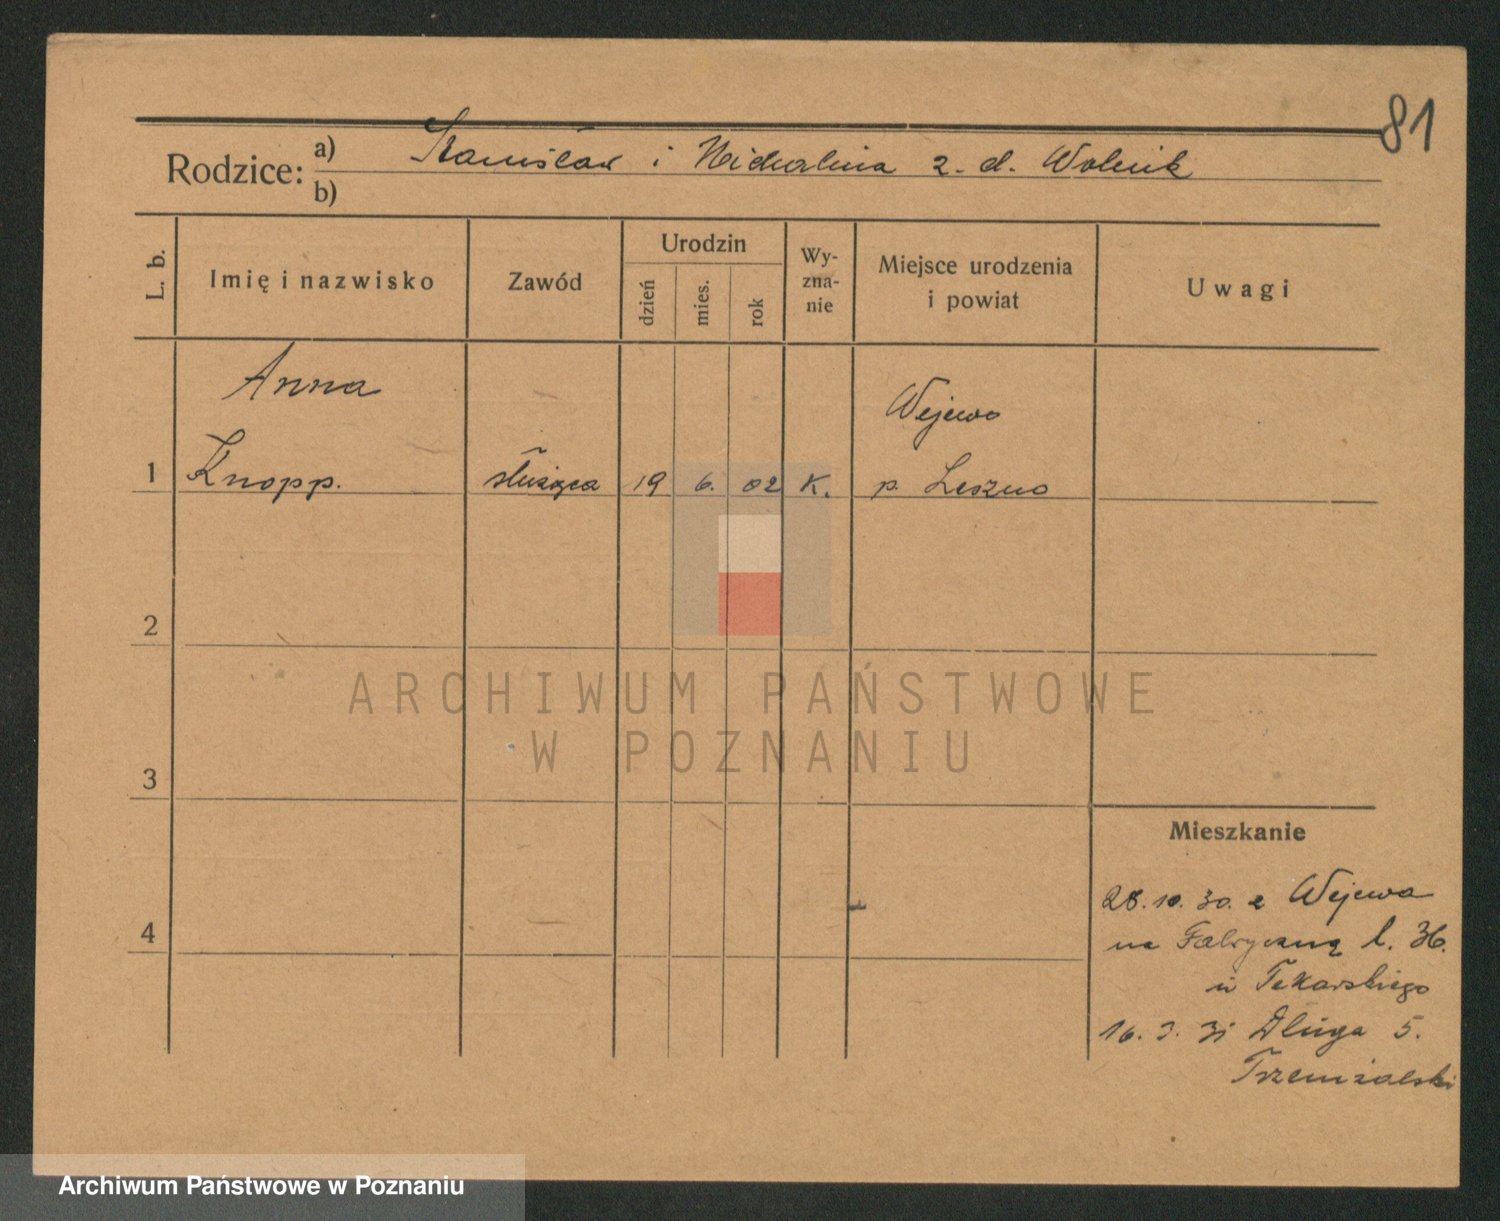 81
Rodzice: a) Stanisław i Michalina z. d. Wolnik
b)
L. b.
Imię i nazwisko
Zawód
Urodzin
dzień
mies.
rok
Wy-
zna-
nie
Miejsce urodzenia
i powiat
Uwagi
Anna
Wejewo
1 Knopp. służąca 19 6. 02 K. p. Leszno
2
ARCHIWUM PAŃSTWOWE
W POZNANIU
3
Mieszkanie
28.10.30. z Wejewa
4
na Fabryczną l. 36.
u Tekarskiego
16. 3. 31 Długa 5.
Trzemżalski
Archiwum Państwowe w Poznaniu